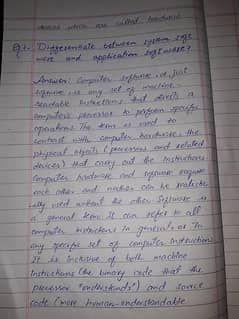 devices which are called hardware
Q1- Differentiate between system soft
ware and application software?
Answer: Computer software is just
software is any set of machine
readable instructions that directs a
computer's processor to perform specific
operations. The term is used to
contrast with computer hardware, the
physical objects (processors and related
devices) that carry out the instructions.
Computer hardware and software require
each other and neither can be realistic
ally used without the other. Software is
a general term. It can refer to all
computer instructions in general or in
any specific set of computer instructions.
It is inclusive of both machine
instructions (the binary code that the
processor "understands") and source
code (more human-understandable